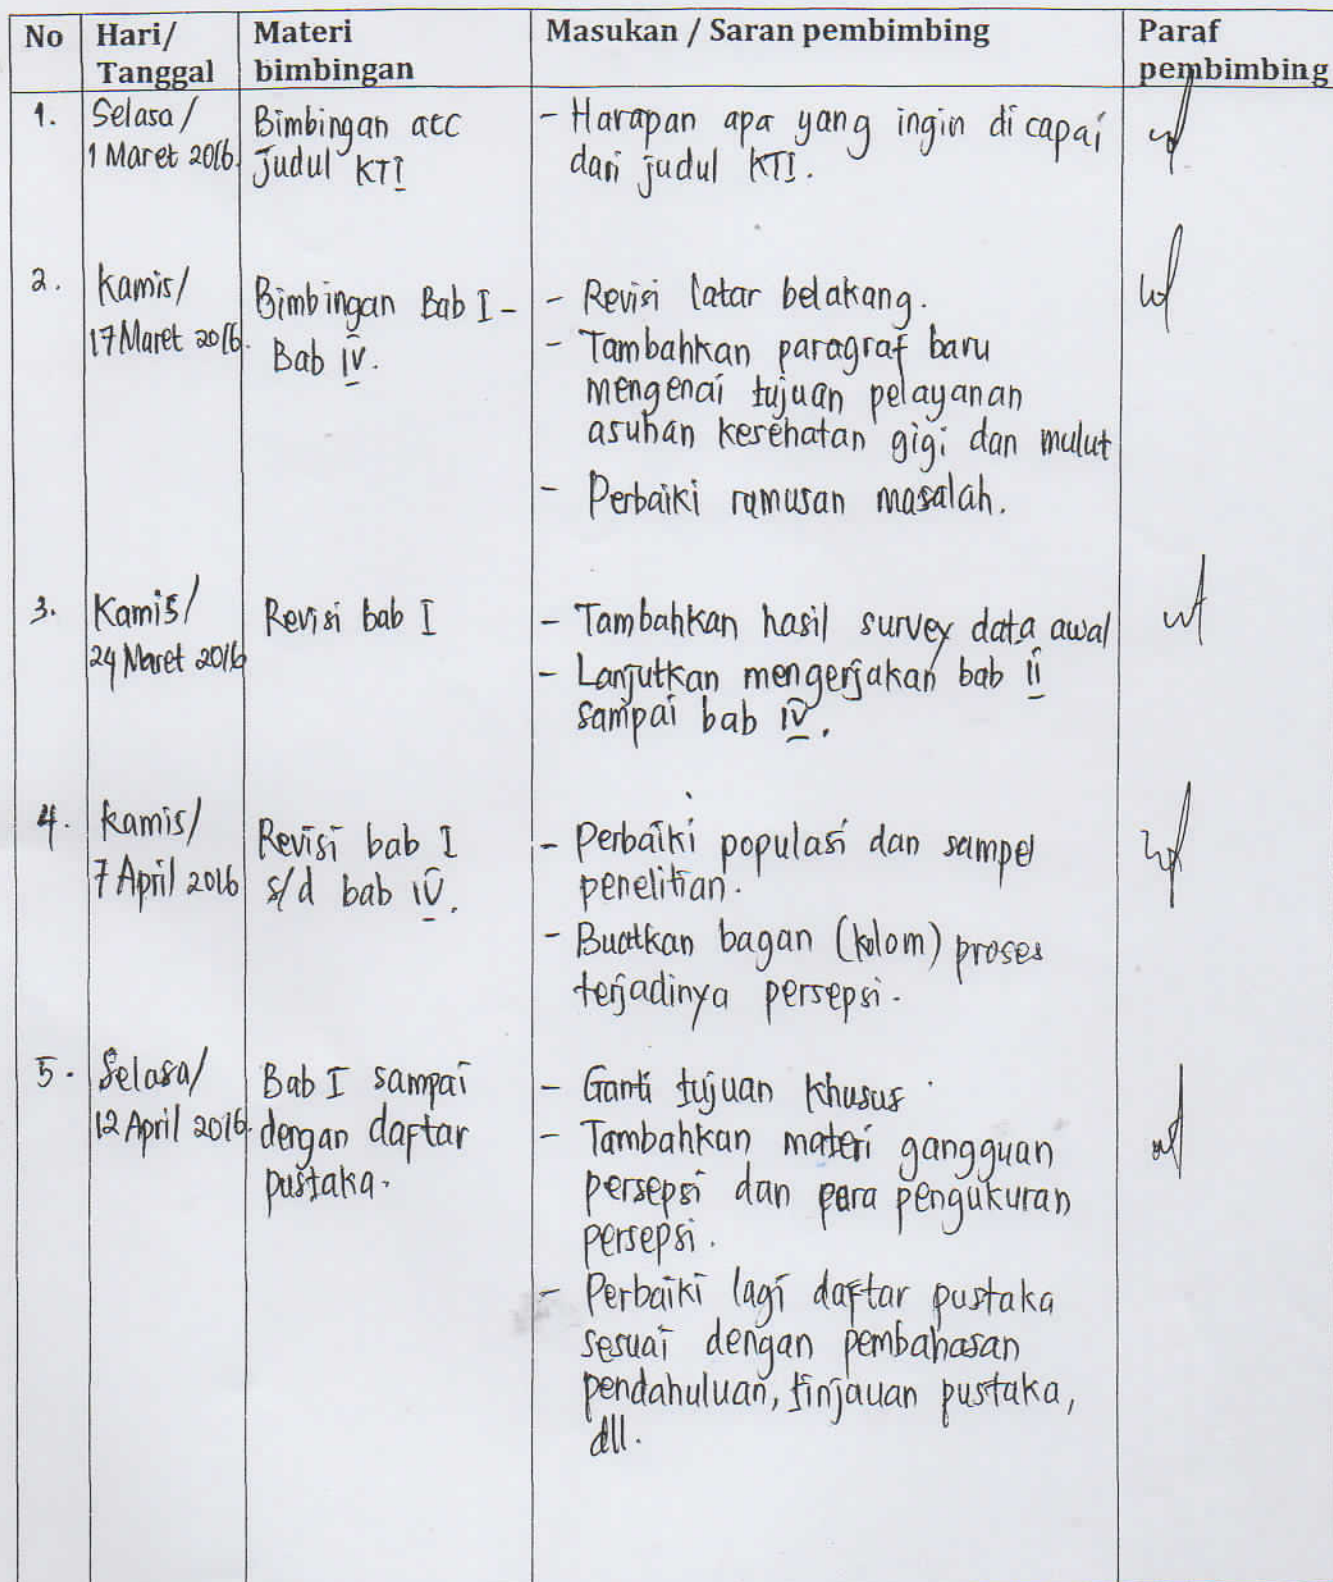 No Hari/ Tanggal Materi bimbingan Masukan / Saran pembimbing Paraf pembimbing
1. Selasa/ 1 Maret 2016.
Bimbingan acc
Judul KTI
- Harapan apa yang ingin di capai
dari judul KTI.
2. Kamis/ 17 Maret 2016.
Bimbingan Bab I -
Bab IV.
- Revisi latar belakang.
- Tambahkan paragraf baru
mengenai tujuan pelayanan
asuhan kesehatan gigi dan mulut
- Perbaiki rumusan masalah.
3. Kamis/ 24 Maret 2016
Revisi bab I
- Tambahkan hasil survey data awal
- Lanjutkan mengerjakan bab II
sampai bab IV.
4. Kamis/ 7 April 2016
Revisi bab I
s/d bab IV.
- Perbaiki populasi dan sampel
penelitian.
- Buatkan bagan (kolom) proses
terjadinya persepsi.
5. Selasa/ 12 April 2016.
Bab I sampai
dengan daftar
pustaka.
- Ganti tujuan khusus.
- Tambahkan materi gangguan
persepsi dan para pengukuran
persepsi.
- Perbaiki lagi daftar pustaka
sesuai dengan pembahasan
pendahuluan, tinjauan pustaka,
dll.